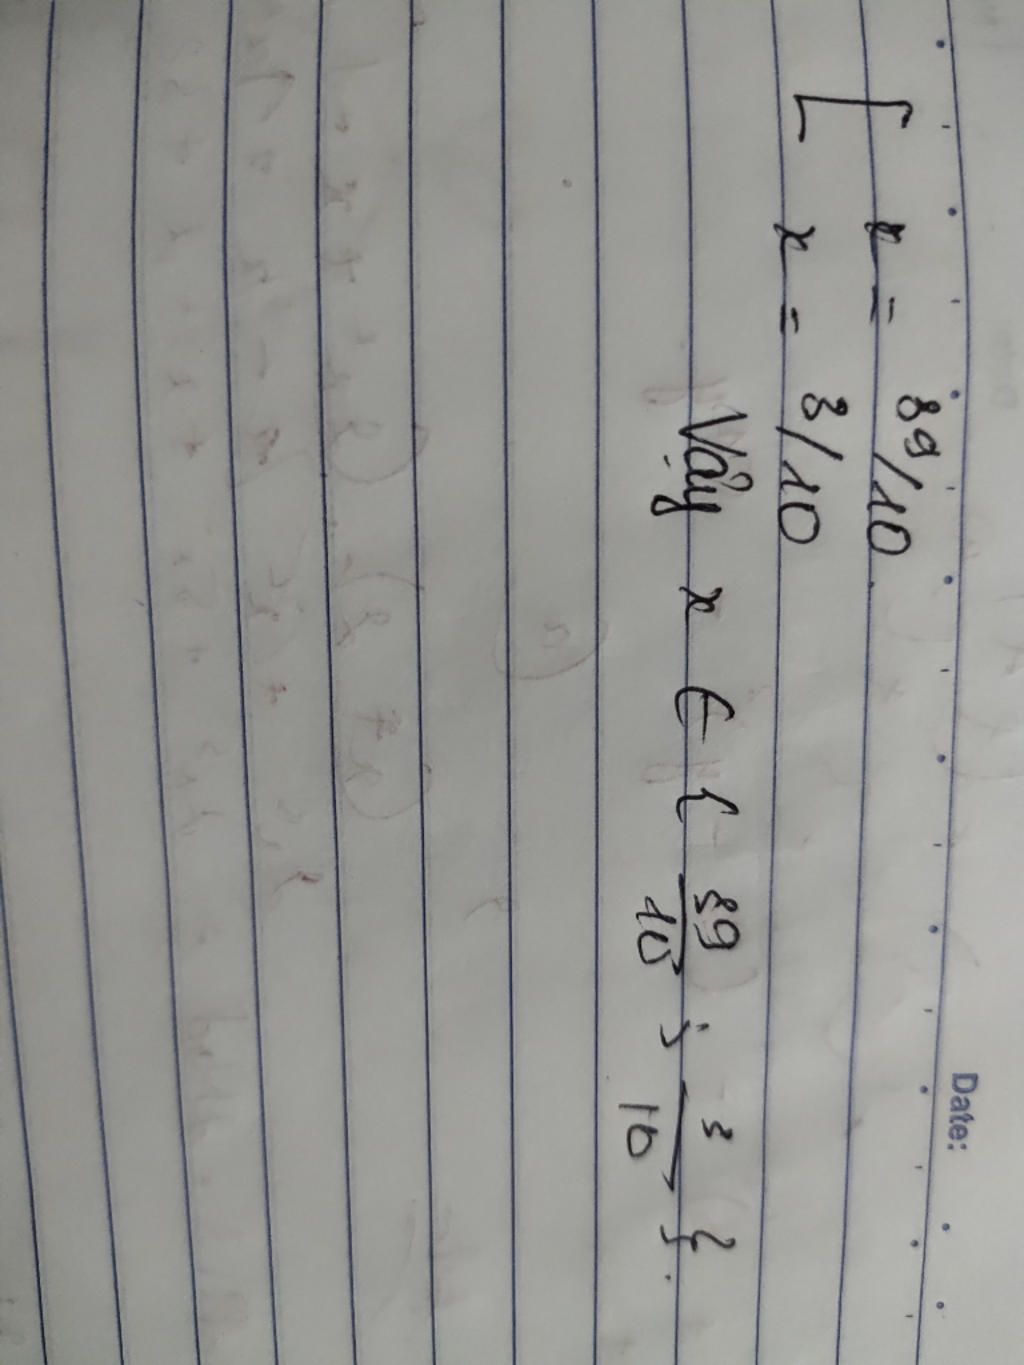 Date:
[ x = 89/10
x = 3/10
Vậy x ∈ { 89/10 ; 3/10 }.